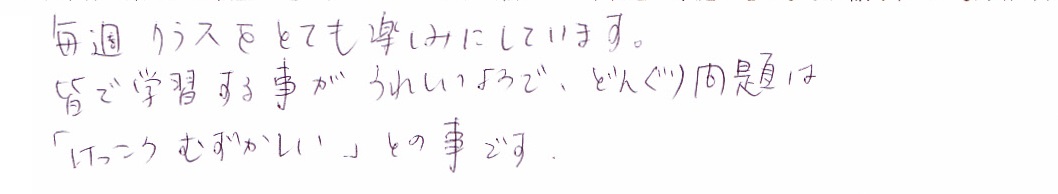 毎週クラスをとても楽しみにしています。
皆で学習する事がうれしいようで、どんぐり問題は
「けっこうむずかしい」との事です.